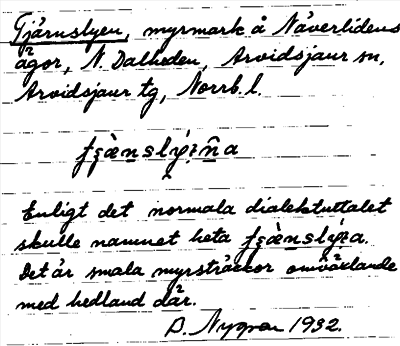 Tjärnslyen, myrmark å Näverlidens
ägor, N. Dalheden, Arvidsjaur sn,
Arvidsjaur tg, Norrb. l.
Enligt det normala dialektuttalet
skulle namnet heta
Det är smala myrsträckor omväxlande
med hedland där.
1932.